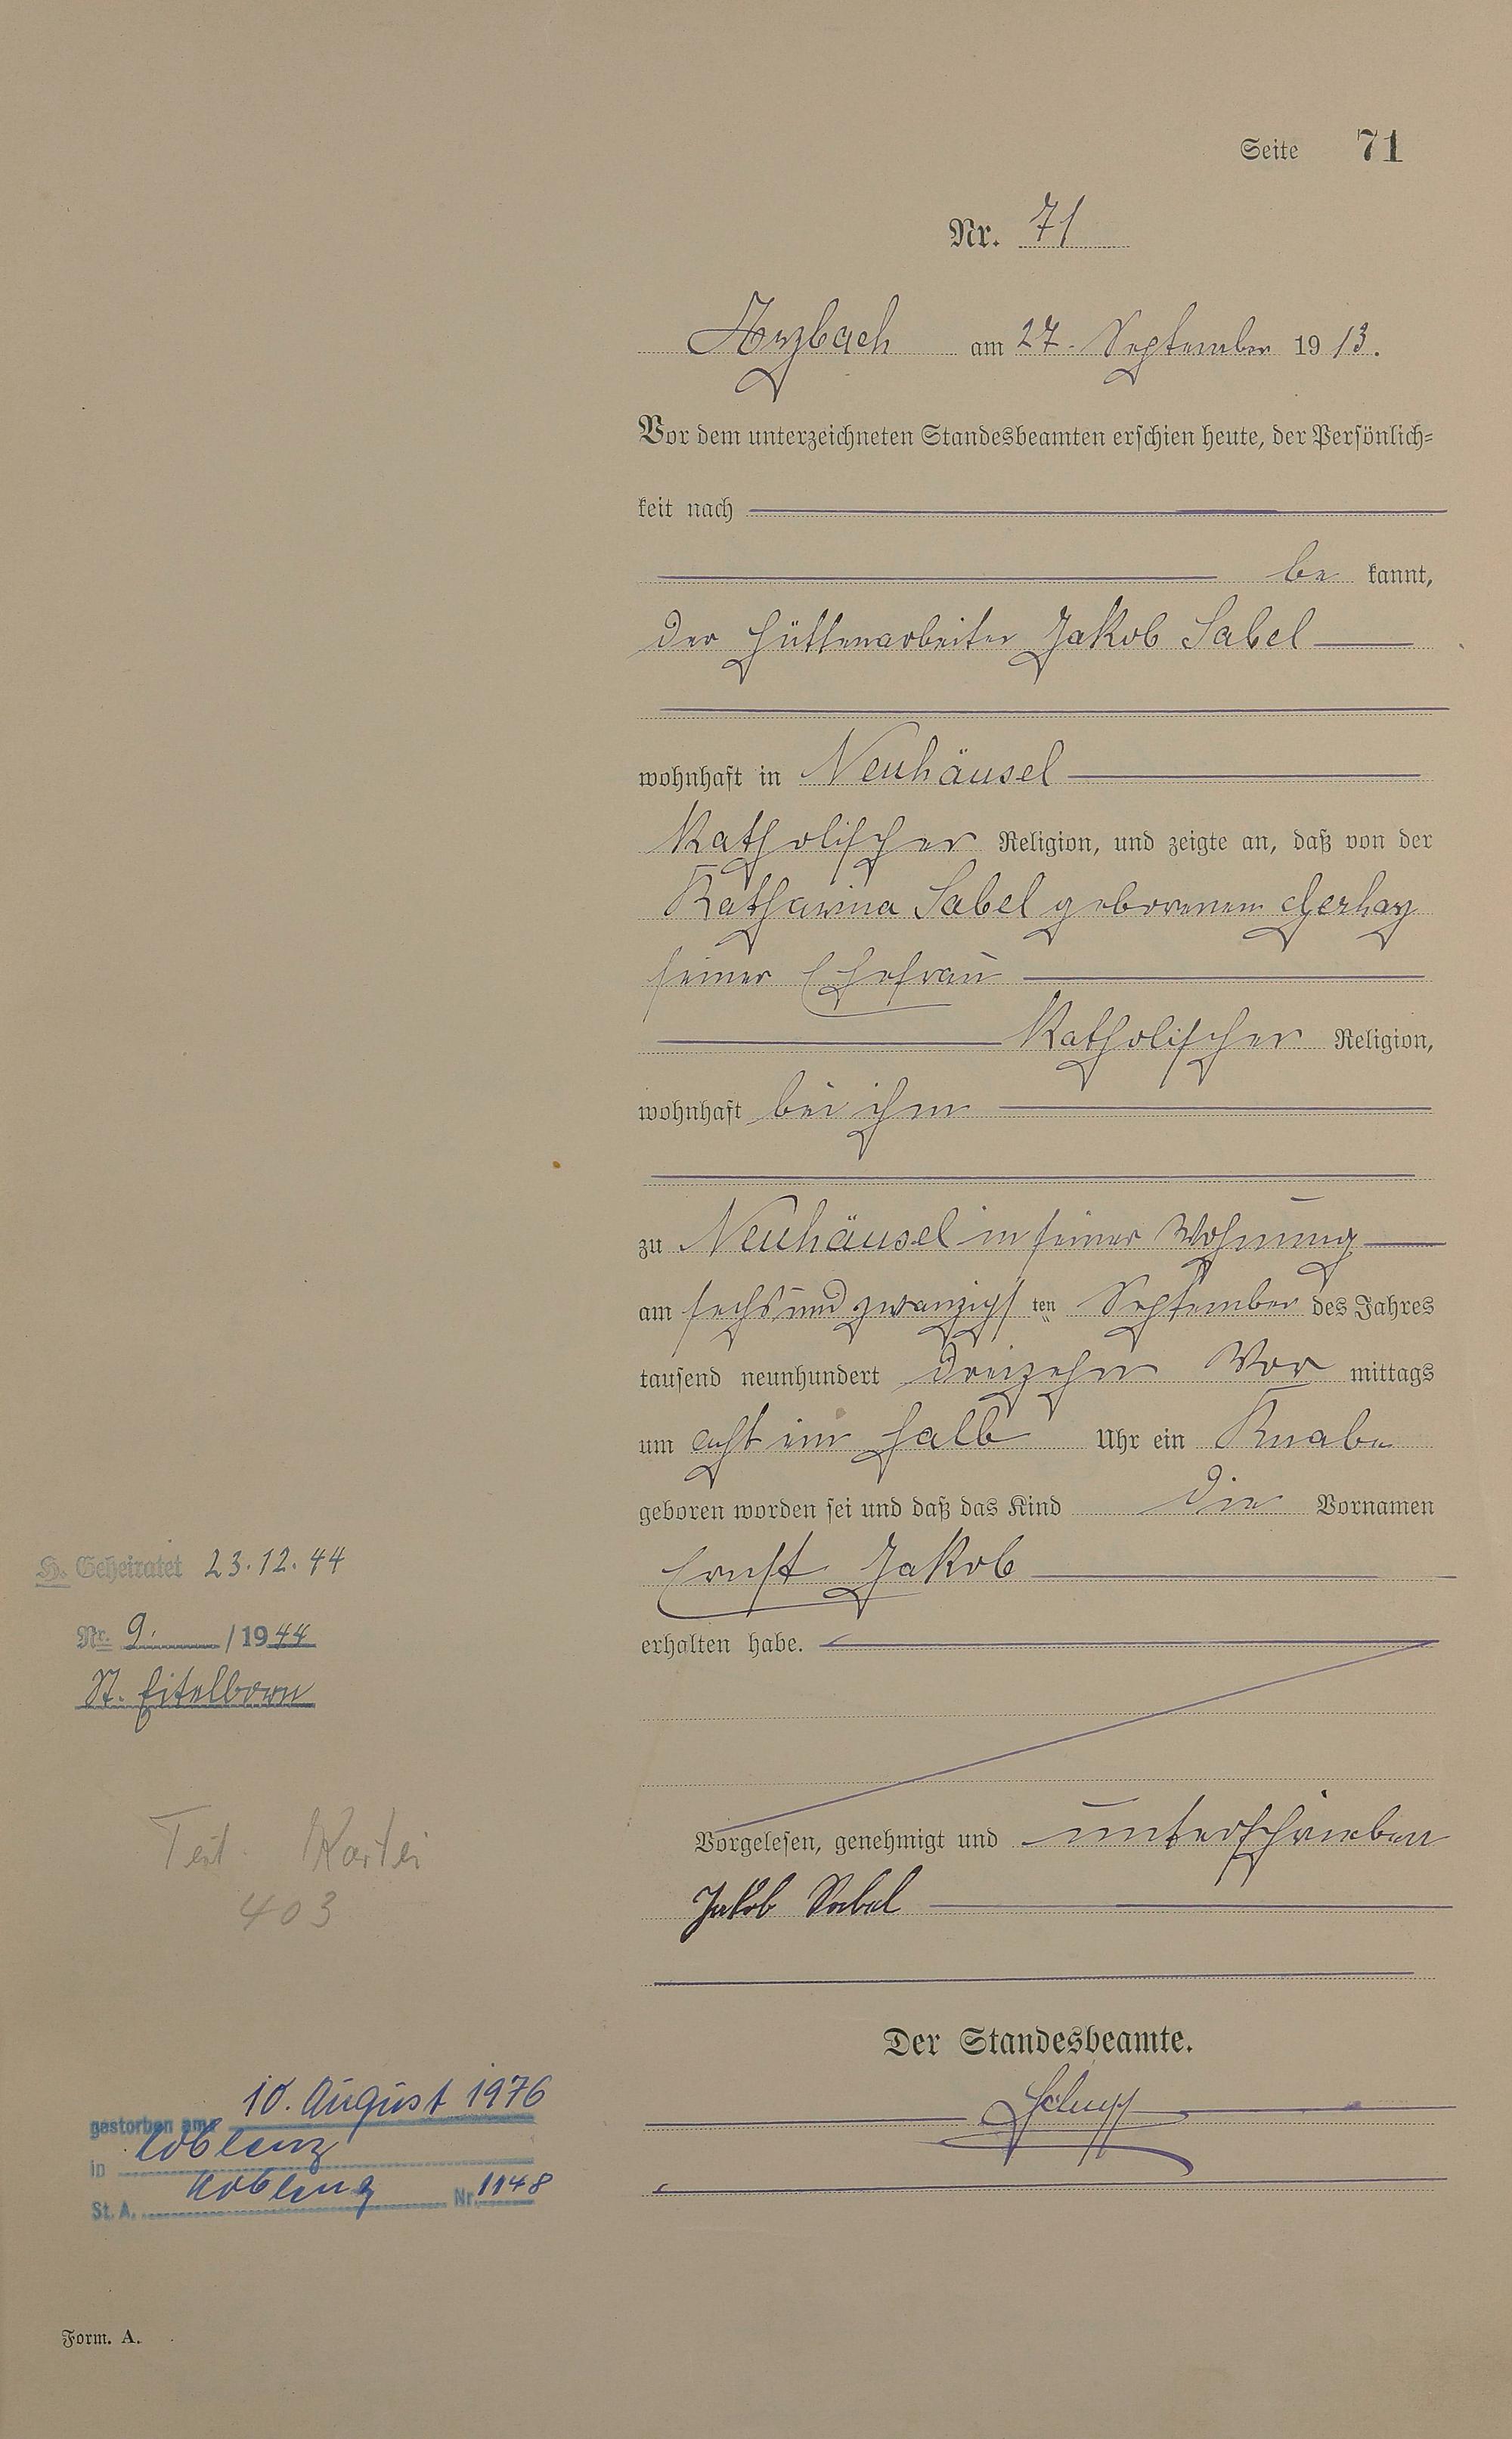 Seite 71
Nr. 71
Arzbach am 27. September 1913.
Vor dem unterzeichneten Standesbeamten erschien heute, der Persönlich=
keit nach
be kannt,
der Hüttenarbeiter Jakob Sabel
wohnhaft in Neuhäusel
katholischer Religion, und zeigte an, daß von der
Katharina Sabel geborenen Gerhaz
seiner Ehefrau
katholischer Religion,
wohnhaft bei ihm
zu Neuhäusel in seiner Wohnung
am sechsundzwanzigsten September des Jahres
tausend neunhundert dreizehn Vormittags
um acht ein halb Uhr ein Knabe
geboren worden sei und daß das Kind die Vornamen
Ernst Jakob
erhalten habe.
Vorgelesen, genehmigt und unterschrieben
Jakob Sabel
Der Standesbeamte.
H. Geheiratet 23.12.44
Nr. 9. / 1944
St. Eitelborn
Kartei
403
gestorben am 10. August 1976
in Koblenz
St. A. Koblenz Nr. 1148
Form. A.